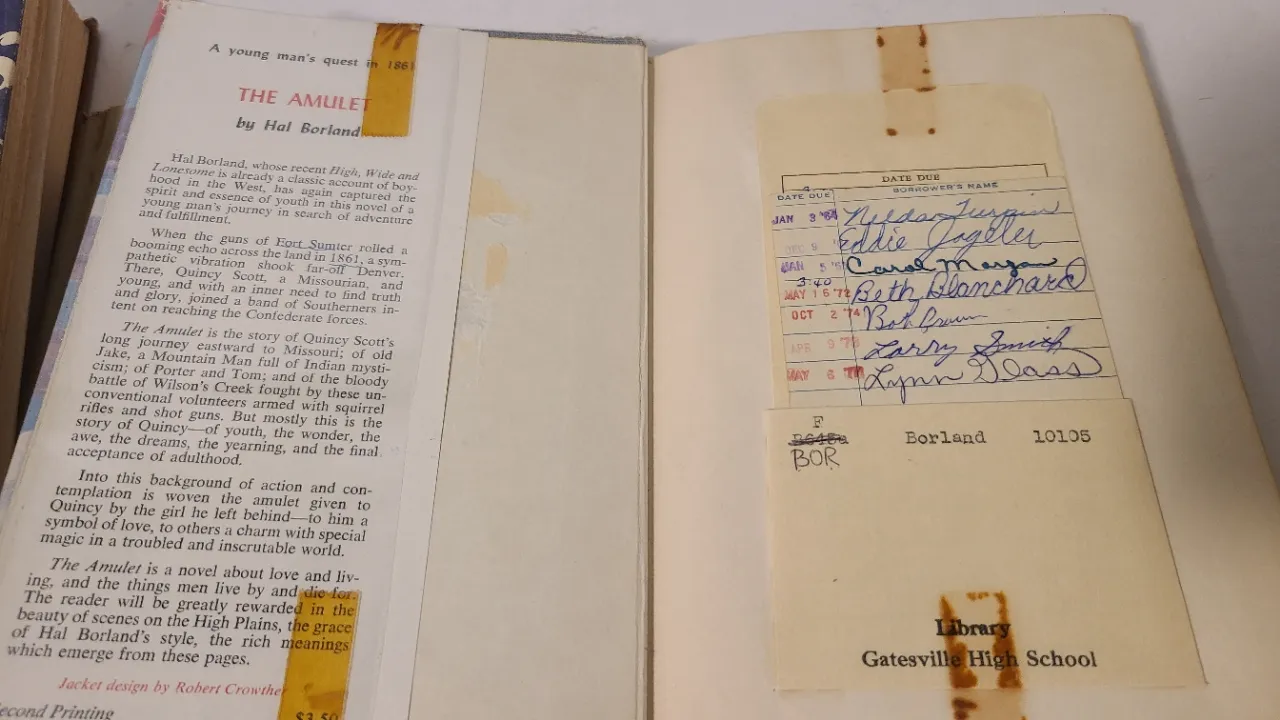 A young man's quest in 1861
THE AMULET
by Hal Borland
Hal Borland, whose recent High, Wide and
Lonesome is already a classic account of boy-
hood in the West, has again captured the
spirit and essence of youth in this novel of a
young man's journey in search of adventure
and fulfillment.
When the guns of Fort Sumter rolled a
booming echo across the land in 1861, a sym-
pathetic vibration shook far-off Denver.
There, Quincy Scott, a Missourian, and
young, and with an inner need to find truth
and glory, joined a band of Southerners in-
tent on reaching the Confederate forces.
The Amulet is the story of Quincy Scott's
long journey eastward to Missouri; of old
Jake, a Mountain Man full of Indian mysti-
cism; of Porter and Tom; and of the bloody
battle of Wilson's Creek fought by these un-
conventional volunteers armed with squirrel
rifles and shot guns. But mostly this is the
story of Quincy—of youth, the wonder, the
awe, the dreams, the yearning, and the final
acceptance of adulthood.
Into this background of action and con-
templation is woven the amulet given to
Quincy by the girl he left behind—to him a
symbol of love, to others a charm with special
magic in a troubled and inscrutable world.
The Amulet is a novel about love and liv-
ing, and the things men live by and die for.
The reader will be greatly rewarded in the
beauty of scenes on the High Plains, the grace
of Hal Borland's style, the rich meanings
which emerge from these pages.
Jacket design by Robert Crowther
Second Printing
$3.50
DATE DUE
DATE DUE BORROWER'S NAME
JAN 3 '64 Nelda Turpin
DEC 9 Eddie Jageler
JAN 5 Carol Morgan
3:40
MAY 16 '72 Beth Blanchard
OCT 2 '74 Bob Brown
APR 9 Larry Smith
MAY 6 Lynn Glass
F
BOR
Borland 10105
Library
Gatesville High School